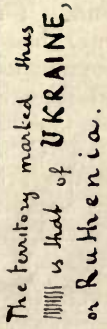 The territory marked thus
is that of UKRAINE,
or Ruthenia.